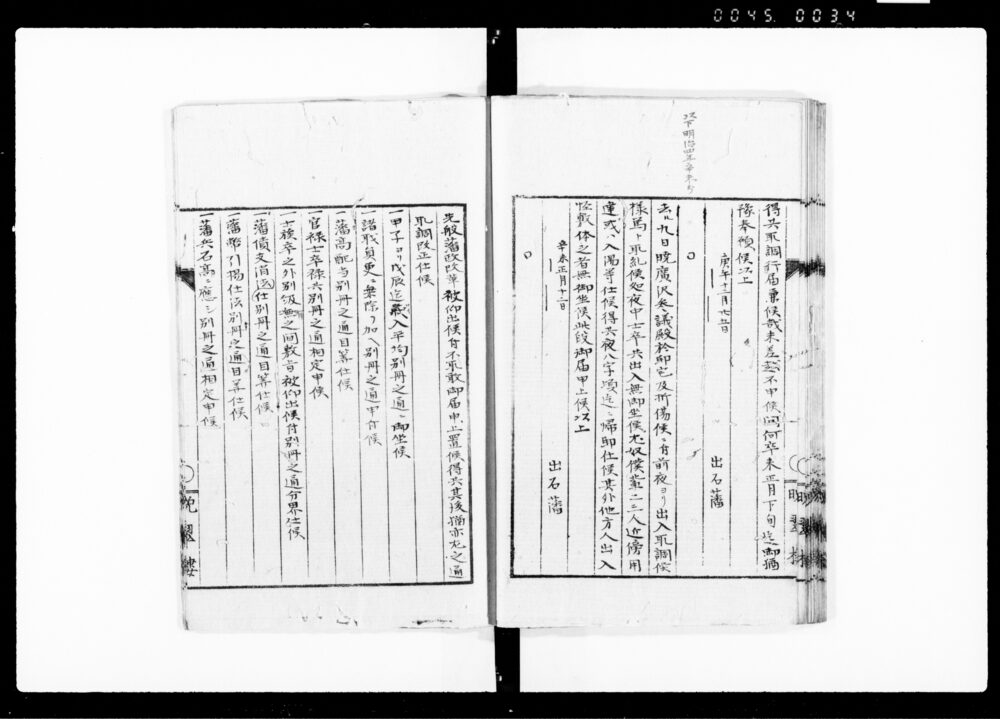 0045. 0034
以下明治四年辛未分
得共取調行届兼候哉未差越不申候間何卒未正月下旬迄御猶
豫奉願候以上
庚午十二月廿五日
出石藩
去ル九日暁廣沢参議殿於邸宅及折傷候ニ付前夜ヨリ出入取調候
様篤ト取糺候処夜中士卒共出入無御坐候尤奴僕輩二三人近傍用
達或ハ入湯等仕候得共夜八字頃迄ニ帰邸仕候其外他方人出入
怪敷体之者無御坐候此段御届申上候以上
辛未正月十二日
出石藩
先般藩政改革被仰出候付不取敢御届申上置候得共其後猶亦左之通
取調改正仕候
一甲子ヨリ戊辰迄歳入平均別冊之通ニ御坐候
一諸職員更ニ無除リ加ヘ別冊之通申付候
一藩高配当別冊之通目算仕候
一官禄士卒禄共別冊之通相定申候
一族卒之外別級無之間敷旨被仰出候付別冊之通分界仕候
一藩債支消送仕別冊之通目算仕候
一藩幣引揚仕法別冊之通目算仕候
一藩兵石高ニ應シ別冊之通相定申候